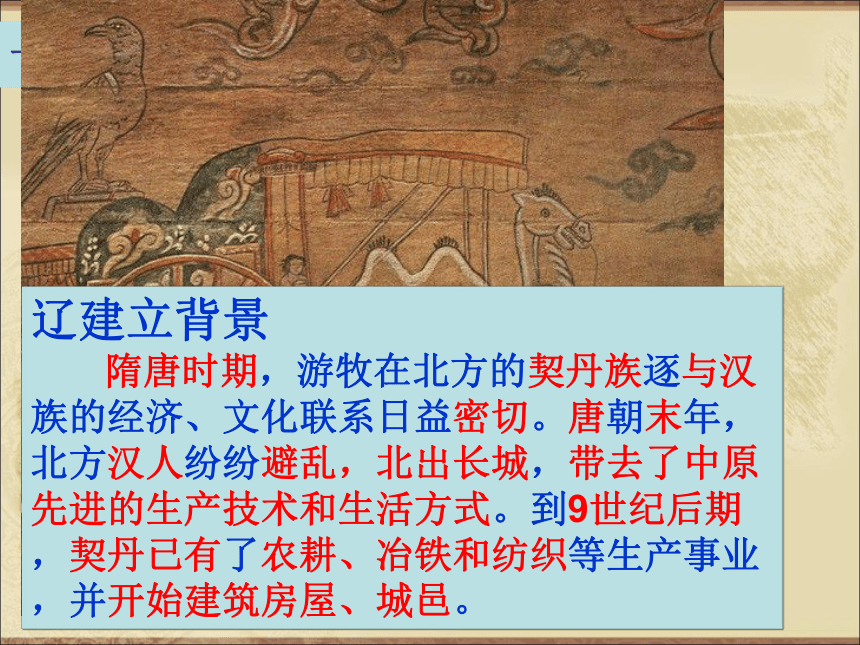 辽建立背景
隋唐时期，游牧在北方的契丹族逐与汉
族的经济、文化联系日益密切。唐朝末年，
北方汉人纷纷避乱，北出长城，带去了中原
先进的生产技术和生活方式。到9世纪后期
，契丹已有了农耕、冶铁和纺织等生产事业
，并开始建筑房屋、城邑。